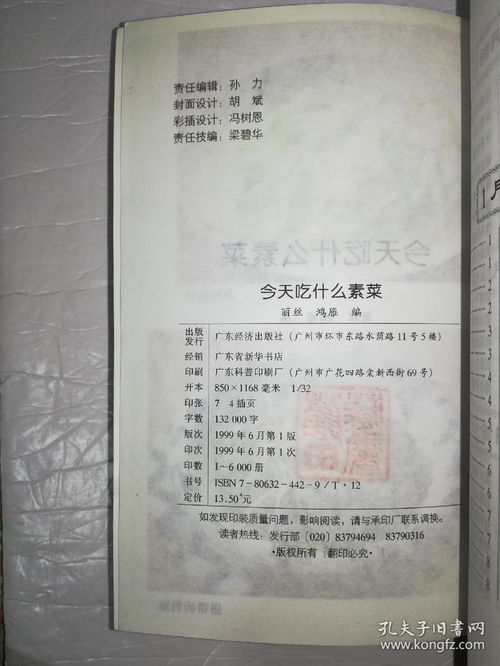 责任编辑：孙 力
封面设计：胡 斌
彩插设计：冯树恩
责任技编：梁碧华
今天吃什么素菜
今天吃什么素菜
丽丝 鸿雁 编
出版
发行 广东经济出版社（广州市环市东路水荫路11号5楼）
经销 广东省新华书店
印刷 广东科普印刷厂（广州市广花四路棠新西街69号）
开本 850×1168毫米 1/32
印张 7 4插页
字数 132 000字
版次 1999年6月第1版
印次 1999年6月第1次
印数 1～6 000册
书号 ISBN 7-80632-442-9/T·12
定价 13.50元
如发现印装质量问题，影响阅读，请与承印厂联系调换。
读者热线：发行部〔020〕83794694 83790316
·版权所有 翻印必究·
1月
1
1
1
1
孔夫子旧书网
www.kongfz.com